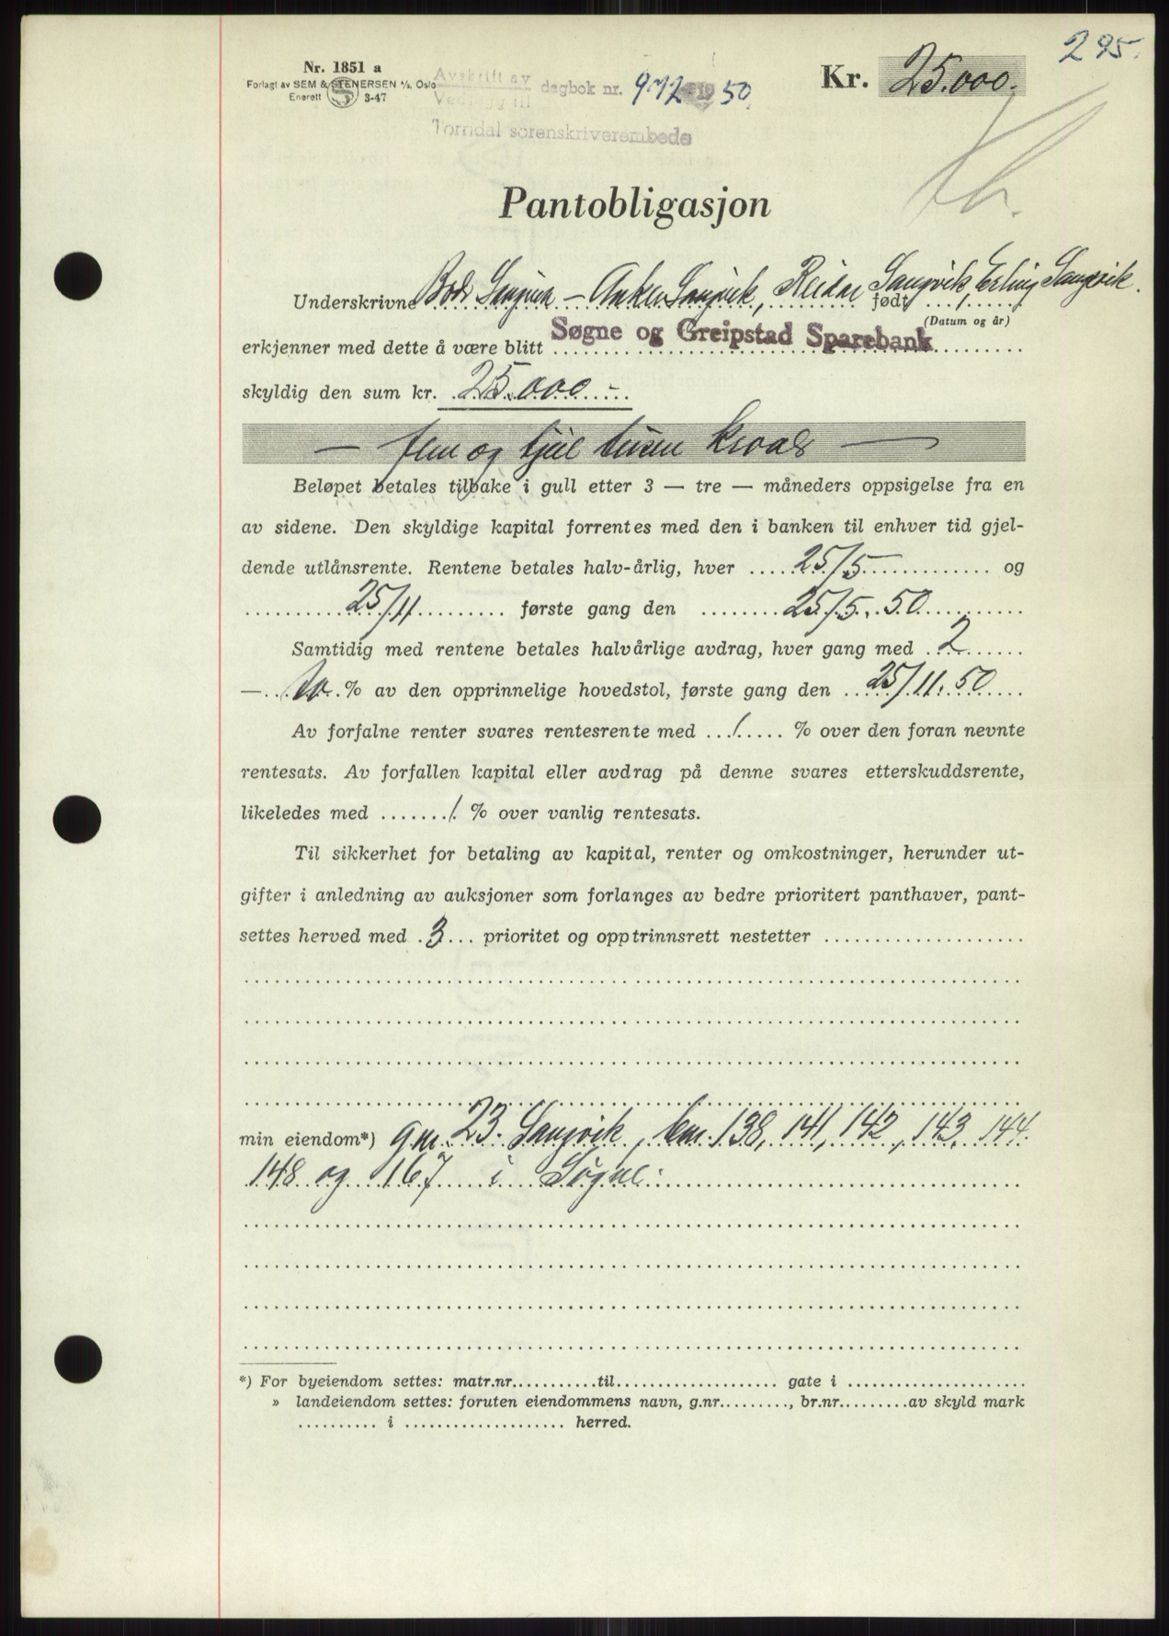 295.
Nr. 1851 a
Forlagt av SEM & STENERSEN A/S, Oslo
Enerett 3-47
Avskrift av
Vedlegg til dagbok nr. 972 1950
Torridal sorenskriverembede
Kr. 25.000.
Pantobligasjon
Underskrivne Anker Langvik, Reidar Langvik, Erling Langvik.
født
(Datum og år)
erkjenner med dette å være blitt Søgne og Greipstad Sparebank
skyldig den sum kr. 25.000.-
— fem og tjue tusen kroner —
Beløpet betales tilbake i gull etter 3 — tre — måneders oppsigelse fra en
av sidene. Den skyldige kapital forrentes med den i banken til enhver tid gjel-
dende utlånsrente. Rentene betales halv-årlig, hver 25/5 og
25/11 første gang den 25/5. 50
Samtidig med rentene betales halvårlige avdrag, hver gang med 2
— to % av den opprinnelige hovedstol, første gang den 25/11. 50
Av forfalne renter svares rentesrente med 1 % over den foran nevnte
rentesats. Av forfallen kapital eller avdrag på denne svares etterskuddsrente,
likeledes med 1 % over vanlig rentesats.
Til sikkerhet for betaling av kapital, renter og omkostninger, herunder ut-
gifter i anledning av auksjoner som forlanges av bedre prioritert panthaver, pant-
settes herved med 3 prioritet og opptrinnsrett nestetter
min eiendom*) gnr. 23. Langvik, bnr. 138, 141, 142, 143, 144.
148 og 167 i Søgne.
*) For byeiendom settes: matr.nr. til gate i
» landeiendom settes: foruten eiendommens navn, g.nr. , br.nr. av skyld mark
i herred.